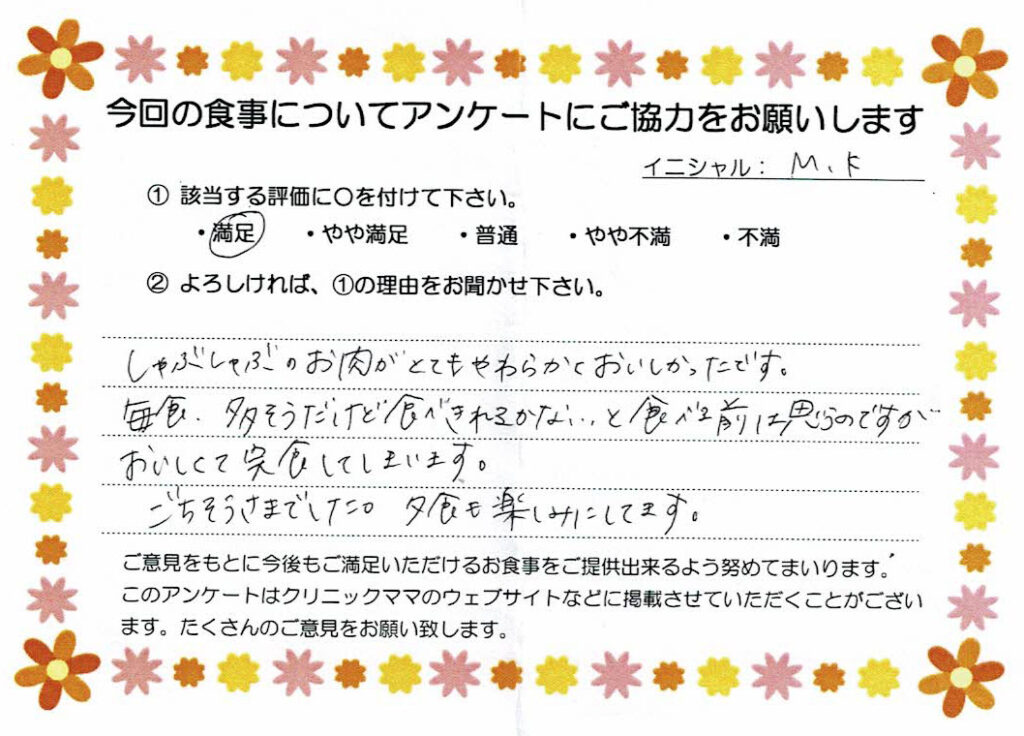 今回の食事についてアンケートにご協力をお願いします
イニシャル： M、K
① 該当する評価に〇を付けて下さい。
・満足 ・やや満足 ・普通 ・やや不満 ・不満
② よろしければ、①の理由をお聞かせ下さい。
しゃぶしゃぶのお肉がとてもやわらかくておいしかったです。
毎食、多そうだけど食べきれるかな...と食べる前は思うのですが
おいしくて完食してしまいます。
ごちそうさまでした。夕食も楽しみにしてます。
ご意見をもとに今後もご満足いただけるお食事をご提供出来るよう努めてまいります。
このアンケートはクリニックママのウェブサイトなどに掲載させていただくことがござい
ます。たくさんのご意見をお願い致します。